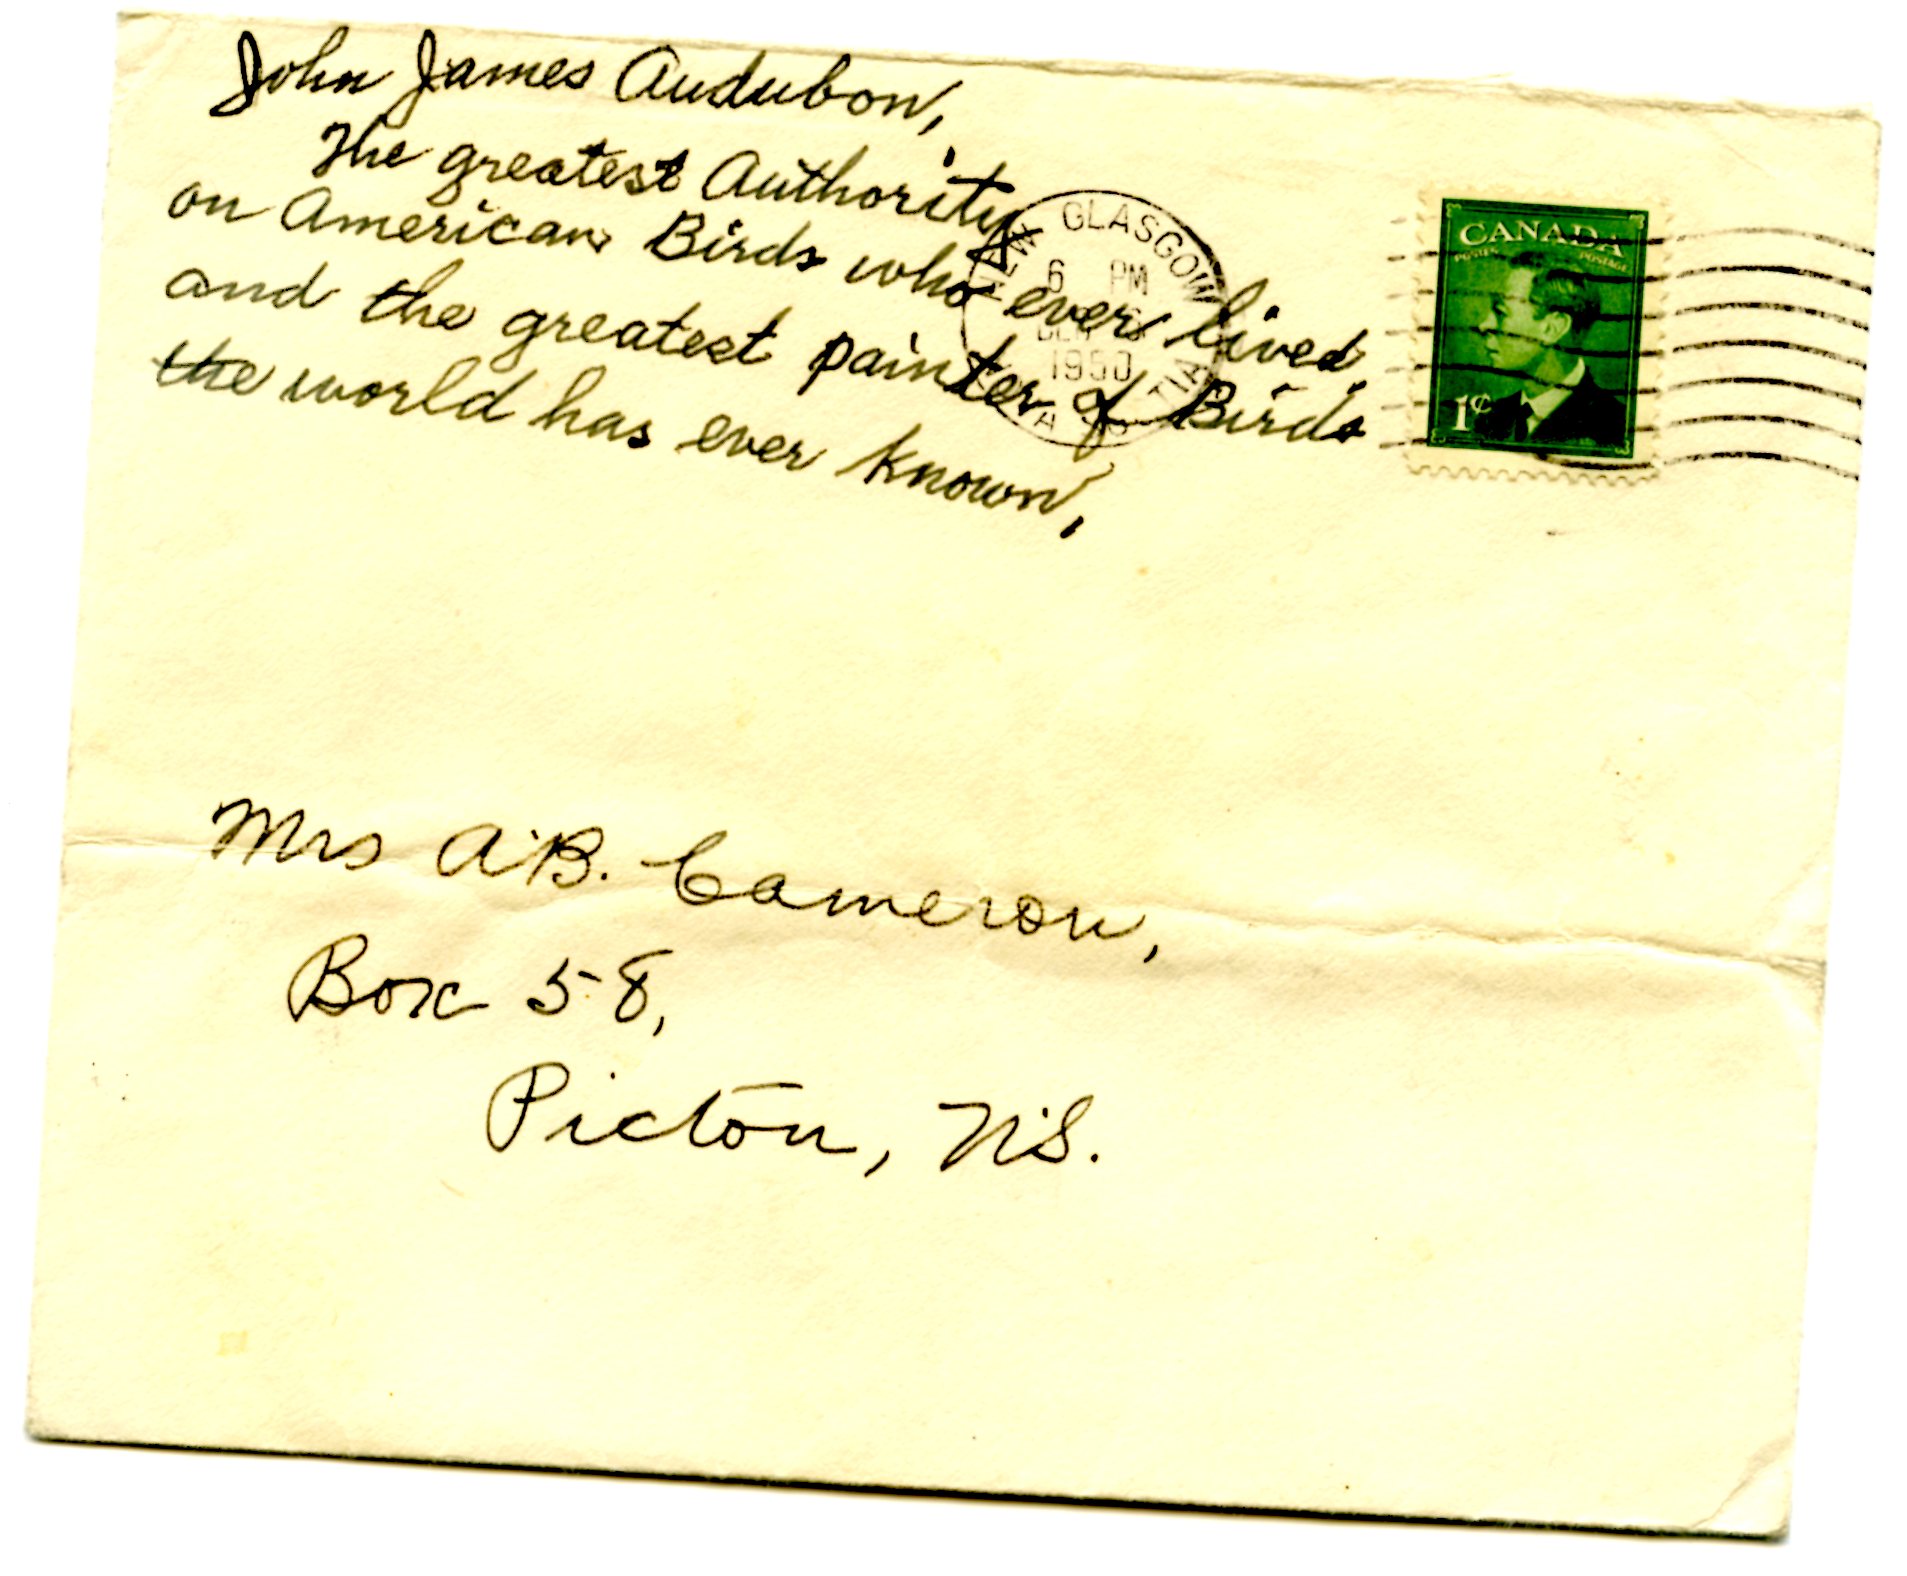 John James Audubon,
The greatest Authority
on American Birds who ever lived,
and the greatest painter of Birds
the world has ever known,
NEW GLASGOW
6 PM
1950
CANADA
POSTES POSTAGE
1¢
Mrs A.B. Cameron,
Box 58,
Pictou, N.S.